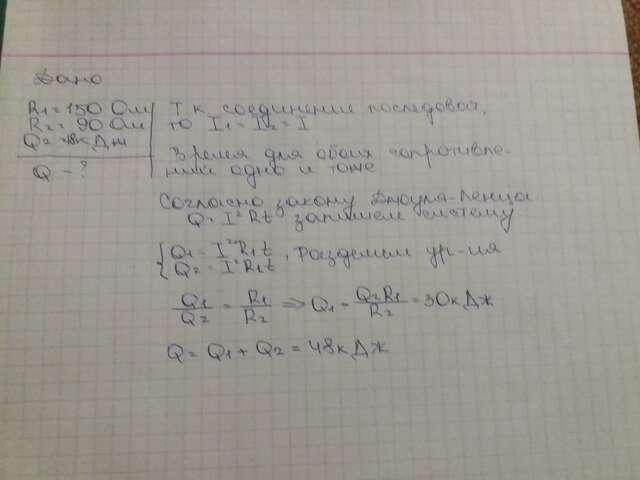 Дано
R1 = 150 Ом
R2 = 90 Ом
Q2 = 18 кДж
Q - ?
Т к соединение последовой,
то I1 = I2 = I
Время для обоих сопротивле-
ний одно и тоже
Согласно закону Джоуля-Ленца
Q = I²Rt запишем систему
{ Q1 = I²R1t
{ Q2 = I²R1t , разделим ур-ия
Q1/Q2 = R1/R2 => Q1 = Q2R1/R2 = 30 кДж
Q = Q1 + Q2 = 48 кДж